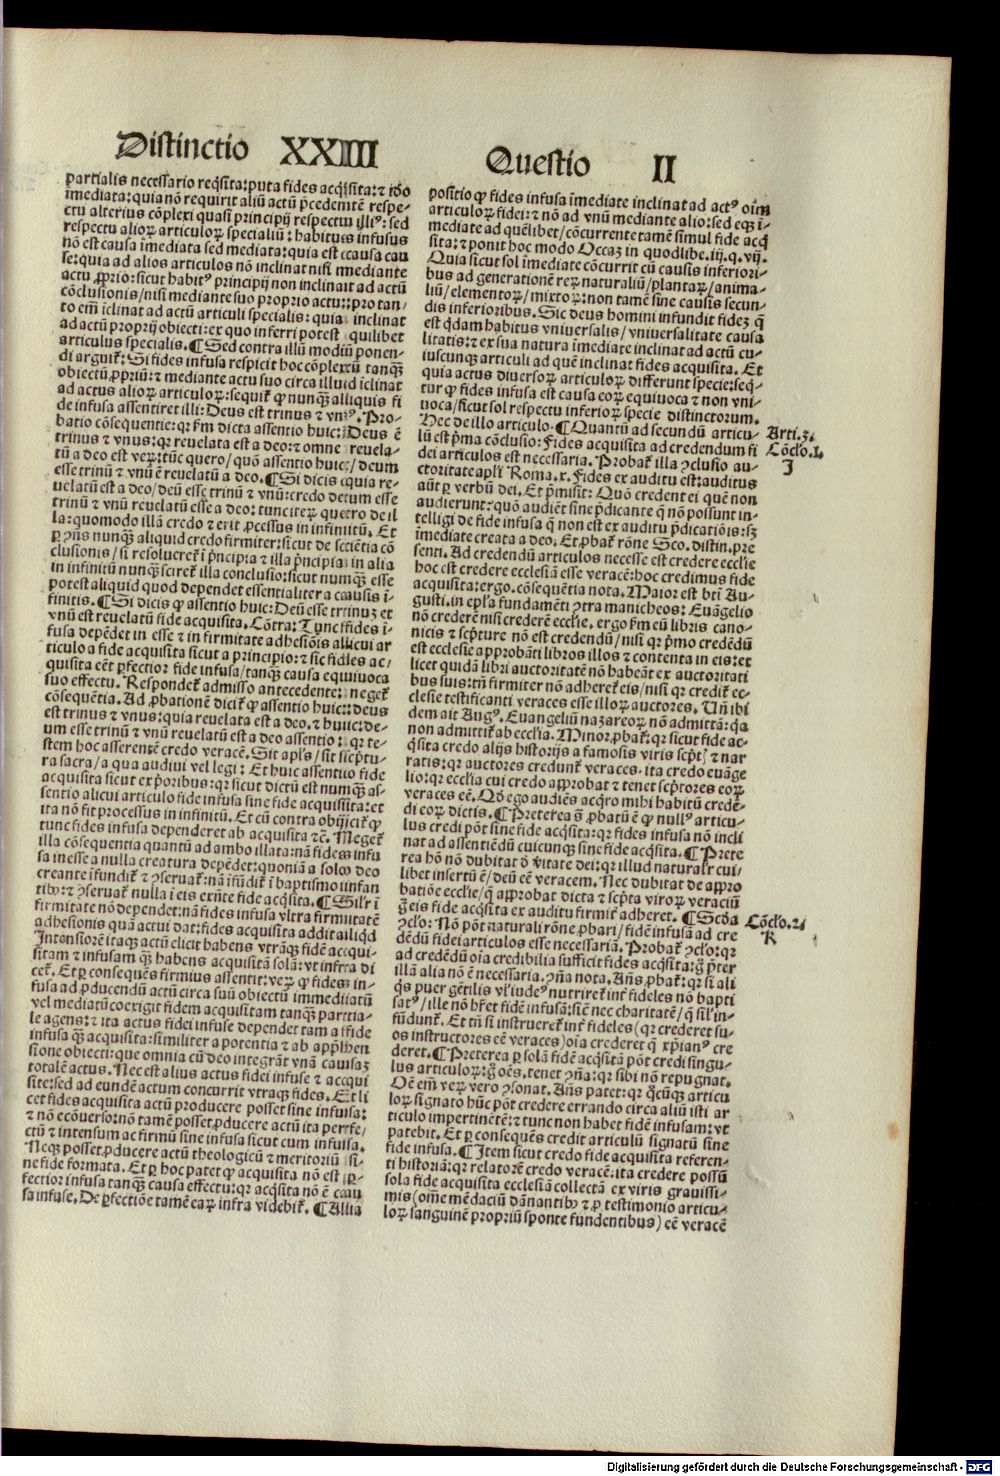 Distinctio XXIIII
Questio II
partialis necessario reqͥsita: puta fides acqͥsita: ⁊ iō
imediata: quia nō requirit aliū actū p̄cedentē respe-
ctu alterius cōplexi quasi principij respectu illiꝰ: sed
respectu alioꝝ articuloꝝ specialiū: habitus infusus
nō est causa īmediata sed mediata: quia est causa cau
se: quia ad alios articulos nō inclinat nisi mediante
actu ꝓprio: sicut habitꝰ principij non inclinat ad actū
cōclusionis/ nisi mediante suo proprio actu: pro tan-
to em̄ iclinat ad actū articuli specialis: quia inclinat
ad actū proprij obiecti: ex quo inferri potest quilibet
articulus specialis. ¶ Sed contra illū modū ponen-
di arguit᷑: Si fides infusa respicit hoc cōplexū tanqͣꝫ
obiectū ꝓpriū: ⁊ mediante actu suo circa illuid iclinat
ad actus alioꝝ articuloꝝ: sequit᷑ ꝙ nunqͣꝫ aliquis fi
de infusa assentiret illi: Deus est trinus ⁊ vnꝰ. Pro-
batio cōsequentie: qꝛ fm̄ dicta assentio huic: Deus ē
trinus ⁊ vnus: qꝛ reuelata est a deo: ⁊ omne reuela-
tū a deo est veꝝ: tūc quero/ quō assentio huic: / deum
esse trinū ⁊ vnū ē reuelatū a deo. ¶ Si dicis quia re-
uelatū est a deo/ deū esse trinū ⁊ vnū: credo deum esse
trinū ⁊ vnū reuelatū esse a deo: tunc iteꝝ quero de il
la: quomodo illā credo ⁊ erit ꝓcessus in infinitū. Et
ꝑ ꝯn̄s nunqͣꝫ aliquid credo firmiter: sicut de scientia cō
clusionis/ si resolueret᷑ ī p̄ncipia ⁊ illa p̄ncipia in alia
in infinitū nunqͣꝫ sciret᷑ illa conclusio: sicut numqͣꝫ esse
potest aliquid quod dependet essentialiter a causis ī-
finitis. ¶ Si dicis ꝙ assentio huic: Deū esse trinuꝫ et
vnū est reuelatū fide acquisita. Cōtra: Tunc fides ī-
fusa depēdet in esse ⁊ in firmitate adhesiōis alicui ar
ticulo a fide acquisita sicut a principio: ⁊ sic fides ac/
quisita eēt ꝑfectior fide infusa/ tanqͣꝫ causa equiuoca
suo effectu. Respondet᷑ admisso antecedente: neget᷑
cōsequētia. Ad ꝓbationē dicit᷑ ꝙ assentio huic: deus
est trinus ⁊ vnus: quia reuelata est a deo. ⁊ huic: de-
um esse trinū ⁊ vnū reuelatū est a deo assentio: qꝛ te-
stem hoc asserentē credo veracē. Sit apl̓s/ sit scp̄tu-
ra sacra/ a qua audiui vel legi: Et huic assentio fide
acquisita sicut ex p̄oribus: qꝛ sicut dictū est numqͣꝫ as-
sentio alicui articulo fide infusa sine fide acquisita: et
ita nō fit processus in infinitū. Et cū contra obijcit᷑ ꝙ
tunc fides infusa dependeret ab acquisita ⁊c̄. Neget᷑
illa cōsequentia quantū ad ambo illata: nā fides infu
sa inesse a nulla creatura depēdet: quoniā a solo deo
creante īfundit᷑ ⁊ ꝯseruat᷑: nā īfūdit᷑ ī baptismo infan
tibꝰ: ⁊ ꝯseruat᷑ nulla ī eis exn̄te fide acqͥsita. ¶ Silr̄ ī
firmitate nō dependet: nā fides infusa vltra firmitatē
adhesionis quā actui dat: fides acquisita addit aliqͥd
Intensiorē itaqꝫ actū elicit habens vtrāqꝫ fidē acqui-
sitam ⁊ infusam qͣꝫ habens acquisitā solā: vt infra di
cet᷑. Et ꝑ consequēs firmius assentit: veꝝ ꝙ fides in-
fusa ad ꝓducendū actū circa suū obiectū immediatū
vel mediatū coexigit fidem acquisitam tanqͣꝫ partia-
le agens: ⁊ ita actus fidei infuse dependet tam a fide
infusa qͣꝫ acquisita: similiter a potentia ⁊ ab app̄hen
sione obiecti: que omnia cū deo integrāt vnā causaꝫ
totalē actus. Nec est alius actus fidei infuse ⁊ acqui
site: sed ad eundē actum concurrit vtraqꝫ fides. Et li
cet fides acquisita actū producere posset sine infusa:
⁊ nō ecōuerso: nō tamē posset ꝓducere actū ita perfe/
ctū ⁊ intensum ac firmū sine infusa sicut cum infusa.
Neqꝫ posset ꝓducere actū theologicū ⁊ meritoriū si-
ne fide formata. Et ꝑ hoc patet ꝙ acquisita nō est ꝑ-
fectior infusa tanqͣꝫ causa effectu: qꝛ acqͥsita nō ē cau
sa infuse. De ꝑfectiōe tamē eaꝝ infra videbit᷑. ¶ Alia
positio ꝙ fides infusa īmediate inclinat ad actꝰ oīm
articuloꝝ fidei: ⁊ nō ad vnū mediante alio: sed eqꝫ ī-
mediate ad quēlibet/ cōcurrente tamē simul fide acqͥ
sita: ⁊ ponit hoc modo Occaꝫ in quodlibe. iij. q. vij.
Quia sicut sol īmediate cōcurrit cū causis inferiori-
bus ad generationē reꝝ naturaliū/ plantaꝝ/ anima-
liū/ elementoꝝ/ mixtoꝝ: non tamē sine causis secun-
dis inferioribus. Sic deus homini infundit fideꝫ q̄
est qͥdam habitus vniuersalis/ vniuersalitate causa
litatis: ⁊ ex sua natura īmediate inclinat ad actū cu-
iuscunqꝫ articuli ad quē inclinat fides acquisita. Et
quia actus diuersoꝝ articuloꝝ differunt specie: seqͥ-
tur ꝙ fides infusa est causa eoꝝ equiuoca ⁊ non vni-
uoca/ sicut sol respectu inferioꝝ specie distinctorum.
Hec de illo articulo. ¶ Quantū ad secundū articu-
lū est p̄ma cōclusio: Fides acquisita ad credendum fi
dei articulos est necessaria. Probat᷑ illa ꝯclusio au-
ctoritate apl̓i Roma. x. Fides ex auditu est: auditus
aūt ꝑ verbū dei. Et p̄misit: Quō credent ei quē non
audierunt: quō audiēt sine p̄dicante ꝙ nō possunt in-
telligi de fide infusa q̄ non est ex auditu p̄dicatiōis: sꝫ
īmediate creata a deo. Et ꝓbat᷑ rōne Sco. distin. p̄e
senti. Ad credendū articulos necesse est credere eccl̓ie
hoc est credere ecclesiā esse veracē: hoc credimus fide
acquisita: ergo. cōsequētia nota. Maior est bt̄i Au-
gusti. in ep̄l̓a fundamēti ꝯtra manicheos: Euāgelio
nō crederē nisi crederē eccl̓ie. ergo fm̄ eū libris cano-
nicis ⁊ scp̄ture nō est credendū/ nisi qꝛ p̄mo credēdū
est ecclesie approbāti libros illos ⁊ contenta in eis: et
licet quidā libri auctoritatē nō habeāt ex auctoritati
bus suis: tn̄ firmiter nō adheret᷑ eis/ nisi qꝛ credit᷑ ec-
clesie testificanti veraces esse illoꝝ auctores. Un̄ ibi
dem ait Augꝰ. Euangeliū nazareoꝝ nō admittā: qͥa
non admittit᷑ ab eccl̓ia. Minor ꝓbat᷑: qꝛ sicut fide ac-
qͥsita credo alijs historijs a famosis viris scp̄t̄ ⁊ nar
ratis: qꝛ auctores credunt᷑ veraces. ita credo euāge
lio: qꝛ eccl̓ia cui credo approbat ⁊ tenet scp̄tores eoꝝ
veraces eē. Qd̄ ego audiēs acqͥro mihi habitū credē-
di eoꝝ dictis. ¶ Preterea ḡ ꝓbatū ē ꝙ nullꝰ articu-
lus credi pōt sine fide acqͥsita: qꝛ fides infusa nō incli
nat ad assentiēdū cuicunqꝫ sine fide acqͥsita. ¶ Prete
rea hō nō dubitat ď v̄itate dei: qꝛ illud naturalr̄ cui/
libet insertū ē/ deū eē veracem. Nec dubitat de appro
batiōe eccl̓ie/ q̄ approbat dicta ⁊ scp̄ta viroꝝ veraciū
ḡ eis fide acqͥsita ex auditu firmit᷑ adheret. ¶ Scd̄a
ꝯclo: Nō pōt naturali rōne ꝓbari/ fidē infusā ad cre
dēdū fidei articulos esse necessariā. Probat᷑ ꝯclo: qꝛ
ad credēdū oīa credibilia sufficit fides acqͥsita: ḡ p̄ter
illā alia nō ē necessaria. ꝯn̄a nota. An̄s ꝓbat᷑: qꝛ si ali
qͥs puer gētilis vl̓ iudeꝰ nutriret᷑ int᷑ fideles nō bapti
satꝰ/ ille nō hr̄et fidē infusā: sic̄ nec charitatē/ q̄ sil̓ in-
fūdunt᷑. Et tn̄ si instrueret᷑ int᷑ fideles (qꝛ crederet su-
os instructores eē veraces) oīa crederet q̄ xp̄ianꝰ cre
deret. ¶ Preterea ꝑ solā fidē acqͥsitā pōt credi singu-
lus articuloꝝ: ḡ oēs. tenet ꝯn̄a: qꝛ sibi nō repugnat.
Oē em̄ veꝝ vero ꝯsonat. An̄s patet: qꝛ qͥcūqꝫ articu
loꝝ signato hūc pōt credere errando circa aliū isti ar
ticulo impertinētē: ⁊ tunc non habet fidē infusam: vt
patebit. Et ꝑ consequēs credit articulū signatū sine
fide infusa. ¶ Item sicut credo fide acquisita referen-
ti historiā: qꝛ relatorē credo veracē: ita credere possū
sola fide acquisita ecclesiā collectā ex viris grauissi-
mis (om̄e mēdaciū dānantibꝰ ⁊ ꝓ testimonio articu-
loꝝ sanguinē propriū sponte fundentibus) eē veracē
Arti. 3.
Cōclo. 1.
J
Cōclo. 2.
K
Digitalisierung gefördert durch die Deutsche Forschungsgemeinschaft - DFG